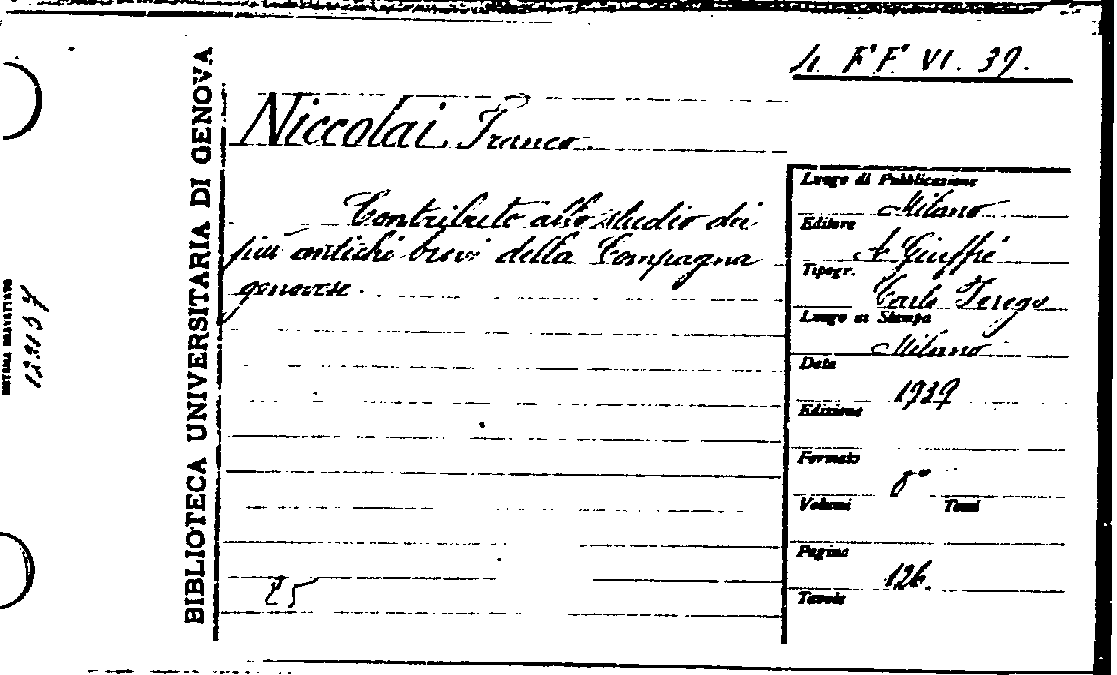 4. F F VI. 39.
BIBLIOTECA UNIVERSITARIA DI GENOVA
Niccolai Franco.
Contributo allo studio dei
più antichi brevi della Compagna
genovese.
25
Luogo di Pubblicazione
Milano
Editore
A. Giuffré
Tipogr.
Carlo
Luogo di Stampa
Milano
Data
1939
Edizione
Formato
8°
Volumi Tomi
Pagine
126.
Tavole